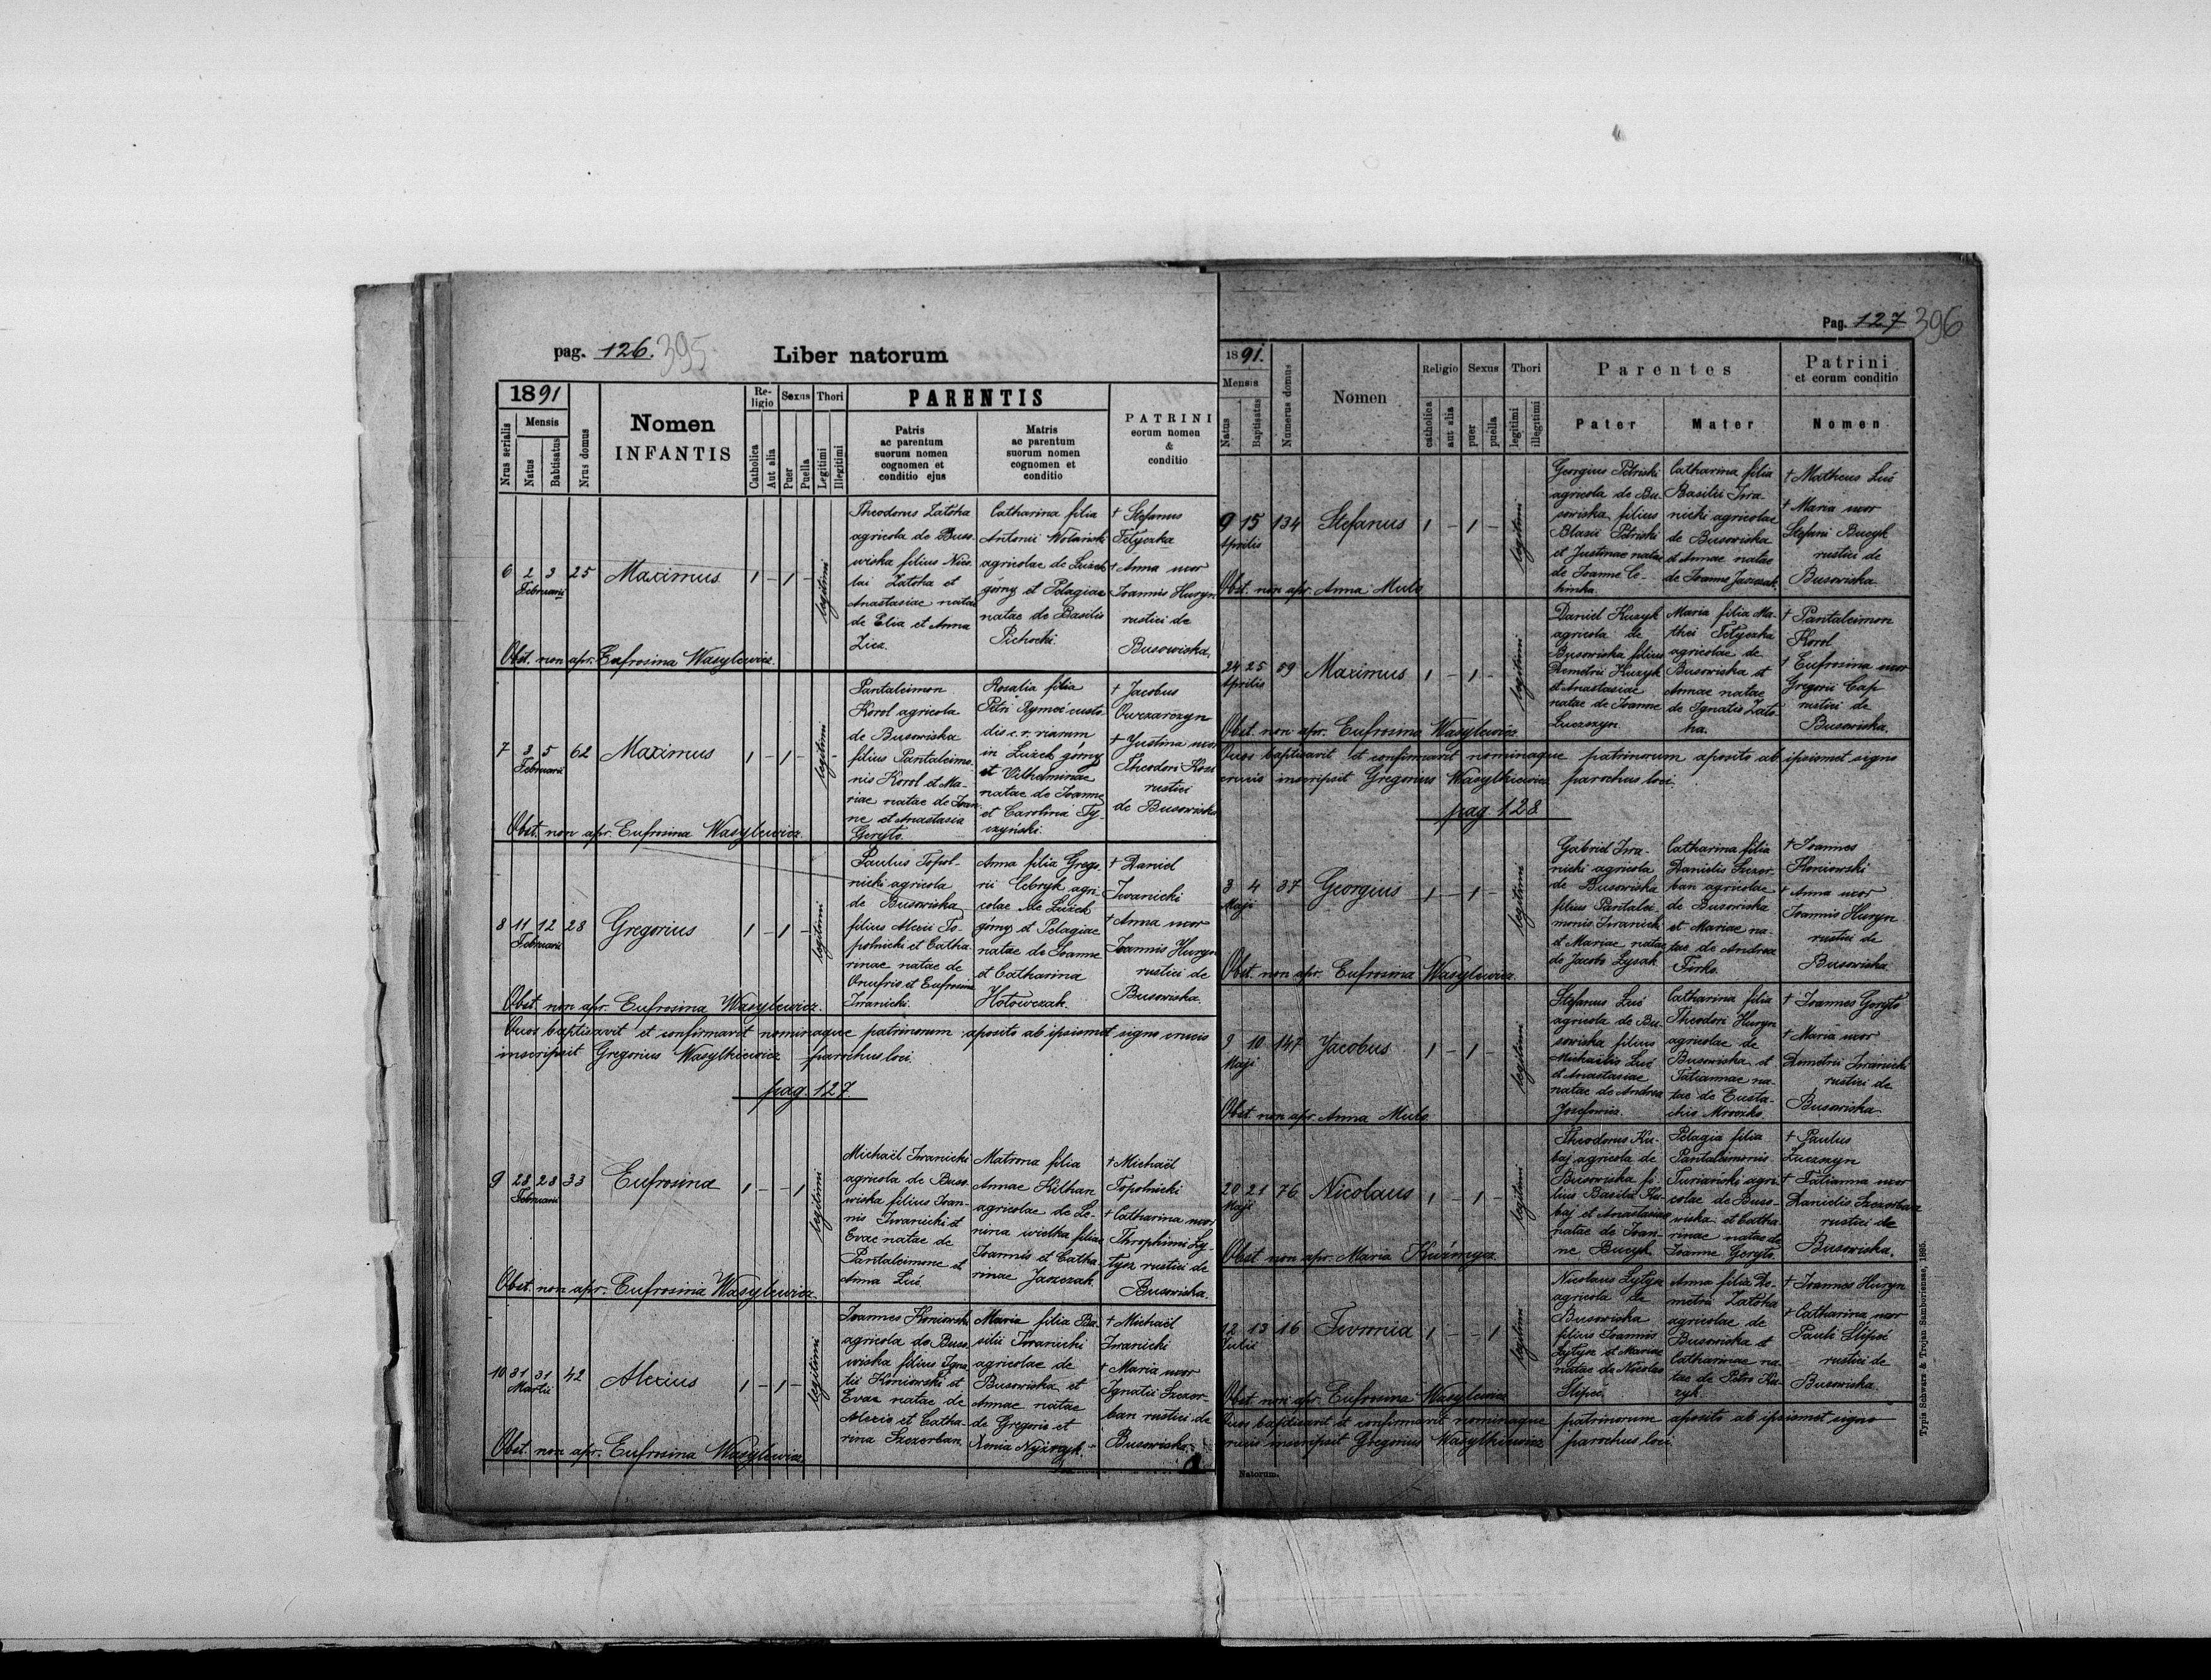 pag. 126. 395
Liber natorum
1891
Nrus serialis
Mensis
Natus
Babtisatus
Nrus domus
Nomen
INFANTIS
Re-
ligio
Catholica
Aut alia
Sexus
Puer
Puella
Thori
Legitimi
Illegitimi
PARENTIS
Patris
ac parentum
suorum nomen
cognomen et
conditio ejus
Matris
ac parentum
suorum nomen
cognomen et
conditio
PATRINI
eorum nomen
&
conditio
6 2 3 25 Maximus 1 - 1 - legitimi
Februarii
Theodorus Zatoka
agricola de Buso-
wiska filius Nico-
lai Zatoka et
Anastasiae natae
de Elia et Anna
Zicz.
Catharina filia
Antonii Wolański
agricolae de Łużek
górny et Pelagiae
natae de Basilio
Pichocki.
† Stefanus
Fetyczka
† Anna uxor
Joannis Huryn
rustici de
Busowiska.
Obst. non apr. Eufrosina Wasylewicz.
7 3 5 62 Maximus 1 - 1 - legitimi
Februarii
Pantaleimon
Korol agricola
de Busowiska
filius Pantaleimo-
nis Korol et Ma-
riae natae de Joan-
ne et Anastasia
Goryto.
Rosalia filia
Petri Rymoć custo-
dis c. r. viarum
in Łużek górny
et Vilhelminae
natae de Joanne
et Carolina Ty-
czyński.
† Jacobus
Owczarczyn
† Justina uxor
Theodori Koss
rustici
de Busowiska
Obst. non apr. Eufrosina Wasylewicz.
8 11 12 28 Gregorius 1 - 1 - legitimi
Februarii
Paulus Topol-
nicki agricola
de Busowiska
filius Alexii To-
polnicki et Catha-
rinae natae de
Onufrio et Eufrosina
Iwanicki.
Anna filia Grego-
rii Cebryk agri-
colae de Łużek
górny et Pelagiae
natae de Joanne
et Catharina
Hotowczak.
† Daniel
Iwanicki
† Anna uxor
Joannis Huryn
rustici de
Busowiska.
Obst. non apr. Eufrosina Wasylewicz.
Quos baptisavit et confirmavit nominaque patrinorum aposito ab ipsismet signo crucis
inscripsit Gregorius Wasylkiewicz parochus loci
pag. 127
9 28 28 33 Eufrosina 1 - - 1 legitimi
Februarii
Michaël Iwanicki
agricola de Buso-
wiska filius Joan-
nis Iwanicki et
Evae natae de
Pantaleimone et
Anna Luś.
Matrona filia
Annae Kilhan
agricolae de Le-
nina wielka filiae
Joannis et Catha-
rinae Jaszczak
† Michaël
Topolnicki
† Catharina uxor
Throphimi Ly-
tysz rustici de
Busowiska.
Obst. non apr. Eufrosina Wasylewicz.
10 31 31 42 Alexius 1 - 1 - legitimi
Martii
Joannes Koniowski
agricola de Buso-
wiska filius Igna-
tii Koniowski et
Evae natae de
Alexio et Catha-
rina Szczerban.
Maria filia Ba-
silii Iwanicki
agricolae de
Busowiska et
Annae natae
de Gregorio et
Xenia
† Michaël
Iwanicki
† Maria uxor
Ignatii Szczer-
ban rustici de
Busowiska.
Obst. non apr. Eufrosina Wasylewicz.
Pag. 127 396
1891.
Mensis
Natus
Baptisatus
Numerus domus
Nomen
Religio
catholica
aut alia
Sexus
puer
puella
Thori
legitimi
illegitimi
Parentes
Pater
Mater
Patrini
et eorum conditio
Nomen
9 15 134 Stefanus 1 - 1 - legitimi
Aprilis
Georgius Petriski
agricola de Bu-
sowiska filius
Blasii Petriski
et Justinae natae
de Joanne
Catharina filia
Basilii Iwa-
nicki agricolae
de Busowiska
et Annae natae
de Joanne Jaszczak.
† Matheus Luś
† Maria uxor
Stefani Bucyk
rustici de
Busowiska
Obst. non apr. Anna Mulo
24 25 59 Maximus 1 - 1 - legitimi
Aprilis
Daniel Kuzyk
agricola de
Busowiska filius
Demetrii Kuzyk
et Anastasiae
natae de Joanne
Łuczszyn.
Maria filia Ma-
thei Fetyczka
agricolae de
Busowiska et
Annae natae
de Ignatio Zato-
ka.
† Pantaleimon
Korol
† Eufrosina uxor
Gregorii Cap
rustici de
Busowiska.
Obst. non apr. Eufrosina Wasylewicz.
Quos baptisavit et confirmavit nominaque patrinorum aposito ab ipsismet signo
crucis inscripsit Gregorius Wasylkiewicz parochus loci.
pag. 128
3 4 37 Georgius 1 - 1 - legitimi
Maji
Gabriel Iwa-
nicki agricola
de Busowiska
filius Pantalei-
monis Iwanicki
et Mariae natae
de Jacobo Łysak
Catharina filia
Danielis Szczer-
ban agricolae
de Busowiska
et Mariae na-
tae de Andrea
Firko.
† Joannes
Koniowski
† Anna uxor
Joannis Huryn
rustici de
Busowiska
Obst. non apr. Eufrosina Wasylewicz.
9 10 147 Jacobus 1 - 1 - legitimi
Maji
Stefanus Luś
agricola de Bu-
sowiska filius
Michaëlis Luś
et Anastasiae
natae de Andrea
Jozefowicz.
Catharina filia
Theodori Huryn
agricolae de
Busowiska et
Tatiannae na-
tae de Eusta-
chio Mroczko.
† Joannes Goryto
† Maria uxor
Demetrii Iwanicki
rustici de
Busowiska
Obst. non apr. Anna Mulo
20 21 76 Nicolaus 1 - 1 - legitimi
Maji
Theodorus Ku-
baj agricola de
Busowiska fi-
lius Basilii Ku-
baj et Anastasiae
natae de Joan-
ne Bucyk
Pelagia filia
Pantaleimonis
Turiański agri-
colae de Buso-
wiska et Catha-
rinae natae de
Joanne Goryto.
† Paulus
Łuczszyn
† Tatianna uxor
Danielis Szczerban
rustici de
Busowiska.
Obst. non apr. Maria
12 13 16 Fevronia 1 - - 1 legitimi
Julii
Nicolaus Lytysz
agricola de
Busowiska
filius Joannis
Lytysz et Mariae
natae de Nicolao
Slipeć.
Anna filia De-
metrii Zatoka
agricolae de
Busowiska et
Catharinae na-
tae de Petro Ku-
zyk.
† Joannes Huryn
† Catharina uxor
Pauli Slipeć
rustici de
Busowiska.
Obst. non apr. Eufrosina Wasylewicz
Quos baptisavit et confirmavit nominaque patrinorum aposito ab ipsismet signo
crucis inscripsit Gregorius Wasylkiewicz parochus loci
Natorum.
Typis Schwarz & Trojan Samboriensae, 1895.